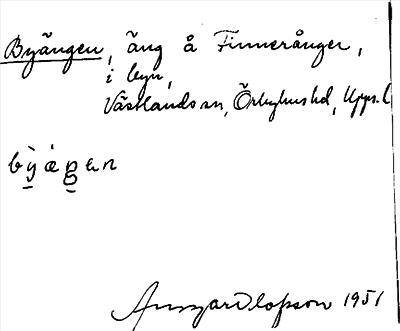 Byängen, äng å Finnerånger,
i byn,
Västlands sn, Örbyhus hd, Upps. l
bỳ̱ ǽŋ̱en
Ansgar Olofsson 1951